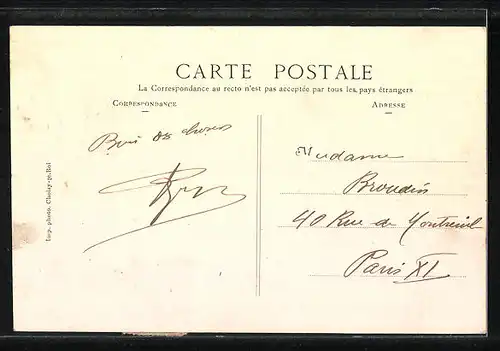 CARTE POSTALE
La Correspondance au recto n'est pas acceptée par tous les pays étrangers
CORRESPONDANCE
ADRESSE
Madame
40 Rue de Montreuil
Paris XI
Imp. photo. Choisy-le-Roi